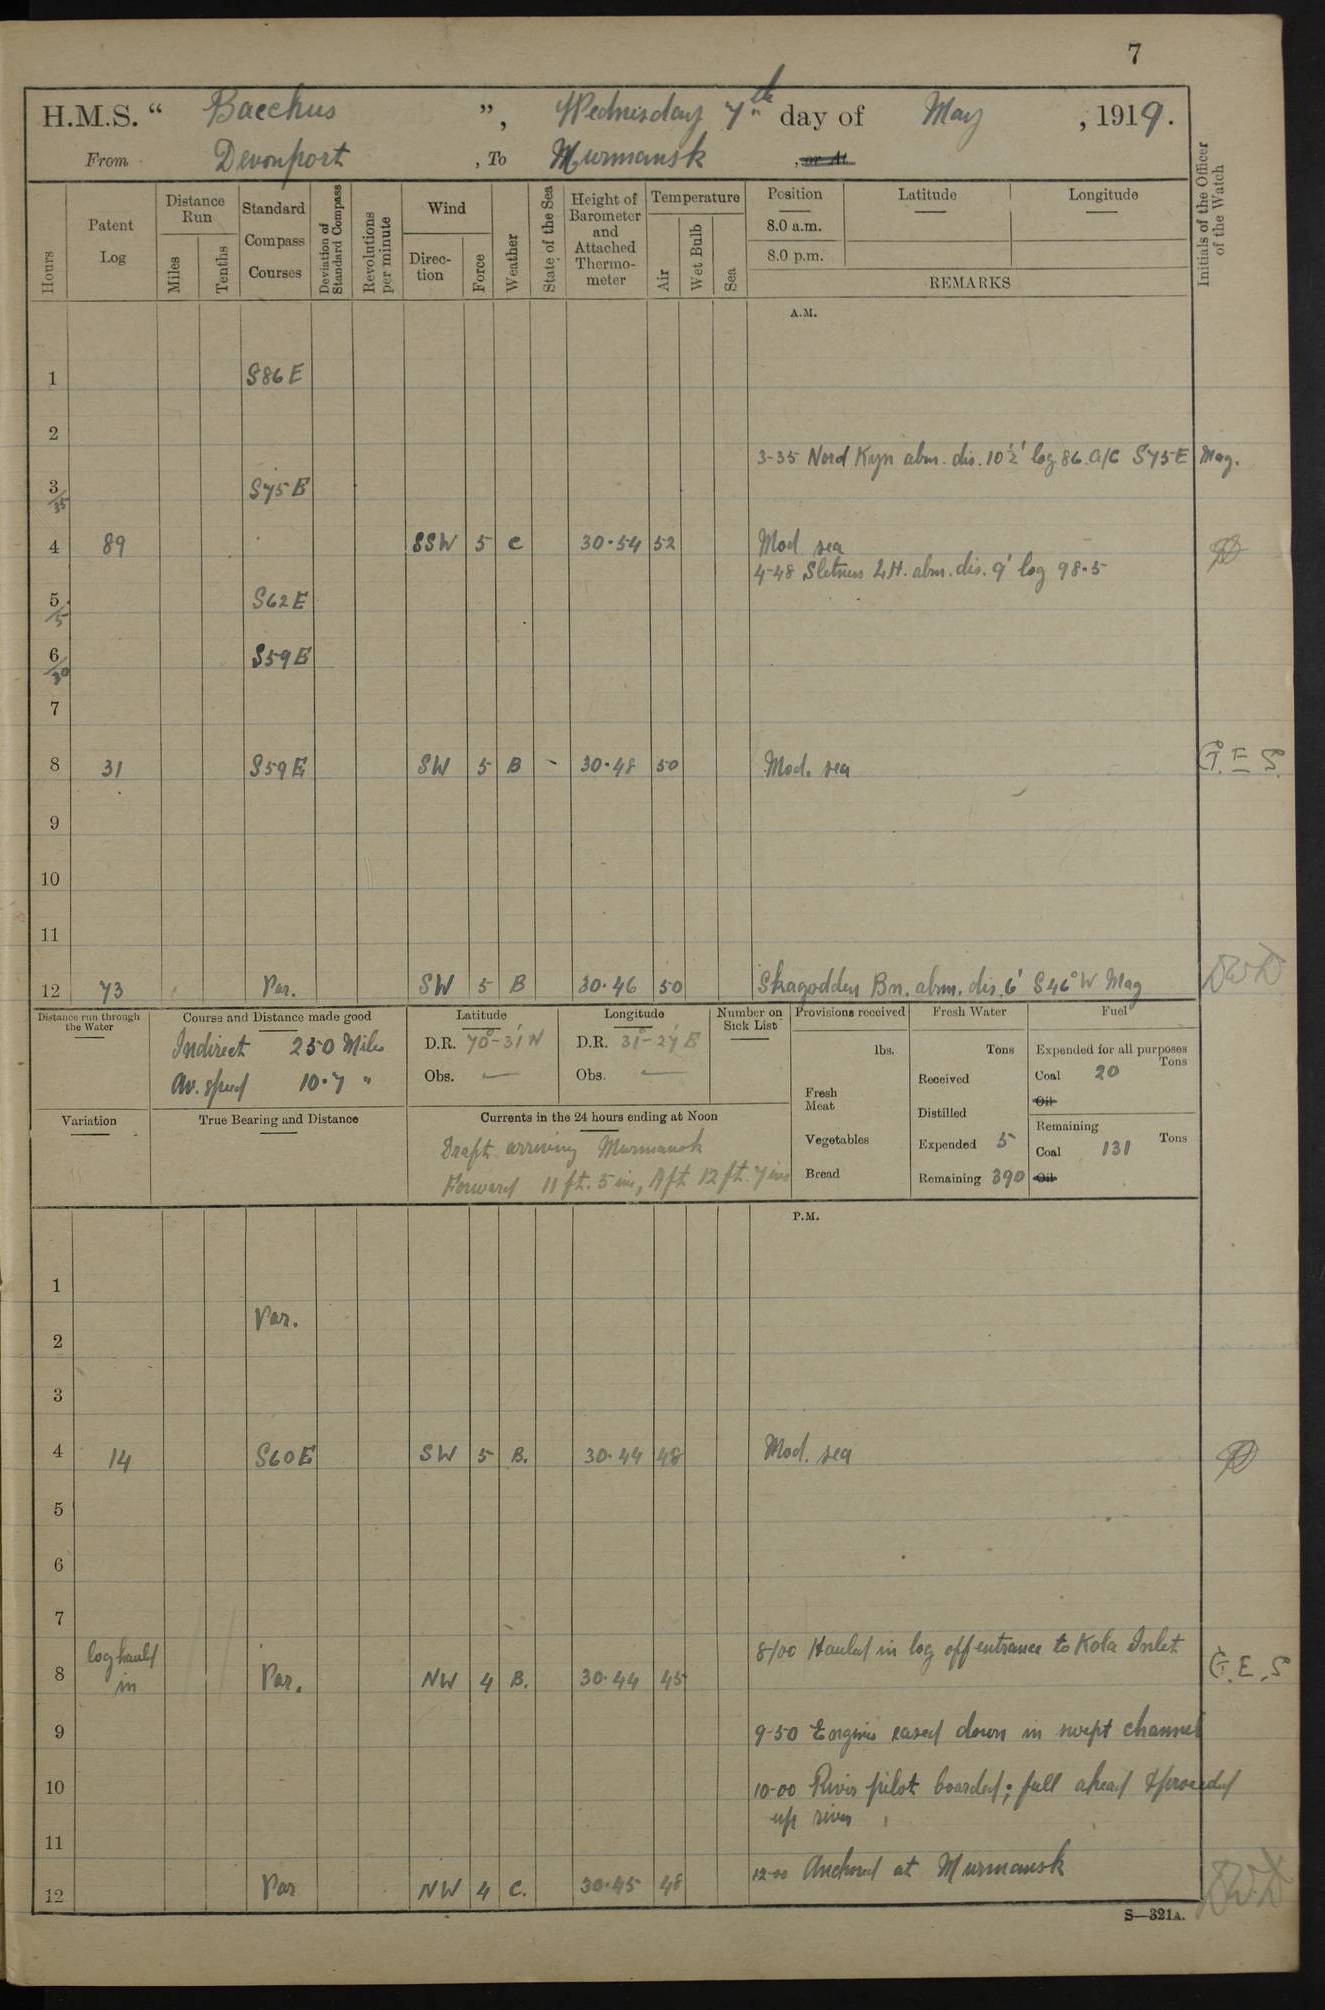 7
H.M.S. “ Bacchus ”, Wednesday 7th day of May , 1919.
From Devonport , To Murmansk , or At
Hours
Patent Log
Distance Run
Miles
Tenths
Standard Compass Courses
Deviation of Standard Compass
Revolutions per minute
Wind
Direction
Force
Weather
State of the Sea
Height of Barometer and Attached Thermometer
Temperature
Air
Wet Bulb
Sea
Position
8.0 a.m.
8.0 p.m.
Latitude
Longitude
REMARKS
Initials of the Officer of the Watch
A.M.
1 S86E
2
3-35 Nord Kyn abm. dis. 10½' log 86. A/C S75E Mag.
3/35 S75E
4 89 SSW 5 C 30.54 52 Mod sea
4-48 Sletnes L.H. abm. dis. 9' log 98.5
5/5 S62E
6/30 S59E
7
8 31 S59E SW 5 B - 30.48 50 Mod. sea G.E.S.
9
10
11
12 73 Var. SW 5 B 30.46 50 Skagodden Bn. abm. dis. 6' S46°W Mag
Distance run through the Water
Course and Distance made good
Indirect 250 Miles
Av. speed 10.7 "
Latitude
D.R. 70°-31'N
Obs. —
Longitude
D.R. 31°-27'E
Obs. —
Number on Sick List
Provisions received
lbs.
Fresh Meat
Vegetables
Bread
Fresh Water
Tons
Received
Distilled
Expended 5
Remaining 390
Fuel
Expended for all purposes
Tons
Coal 20
Oil
Remaining
Tons
Coal 131
Oil
Variation
True Bearing and Distance
Currents in the 24 hours ending at Noon
Draft arriving Murmansk
Forward 11 ft. 5 in, Aft 12 ft. 7 ins
P.M.
1
Var.
2
3
4 14 S60E SW 5 B. 30.44 48 Mod. sea
5
6
7
8/00 Hauled in log off entrance to Kola Inlet
8 log hauled in Var. NW 4 B. 30.44 45 G.E.S
9 9-50 Engines eased down in swept channel
10 10-00 River pilot boarded; full ahead & proceeded
up river
11
12-00 Anchored at Murmansk
12 Var NW 4 C. 30.45 48
S—321A.